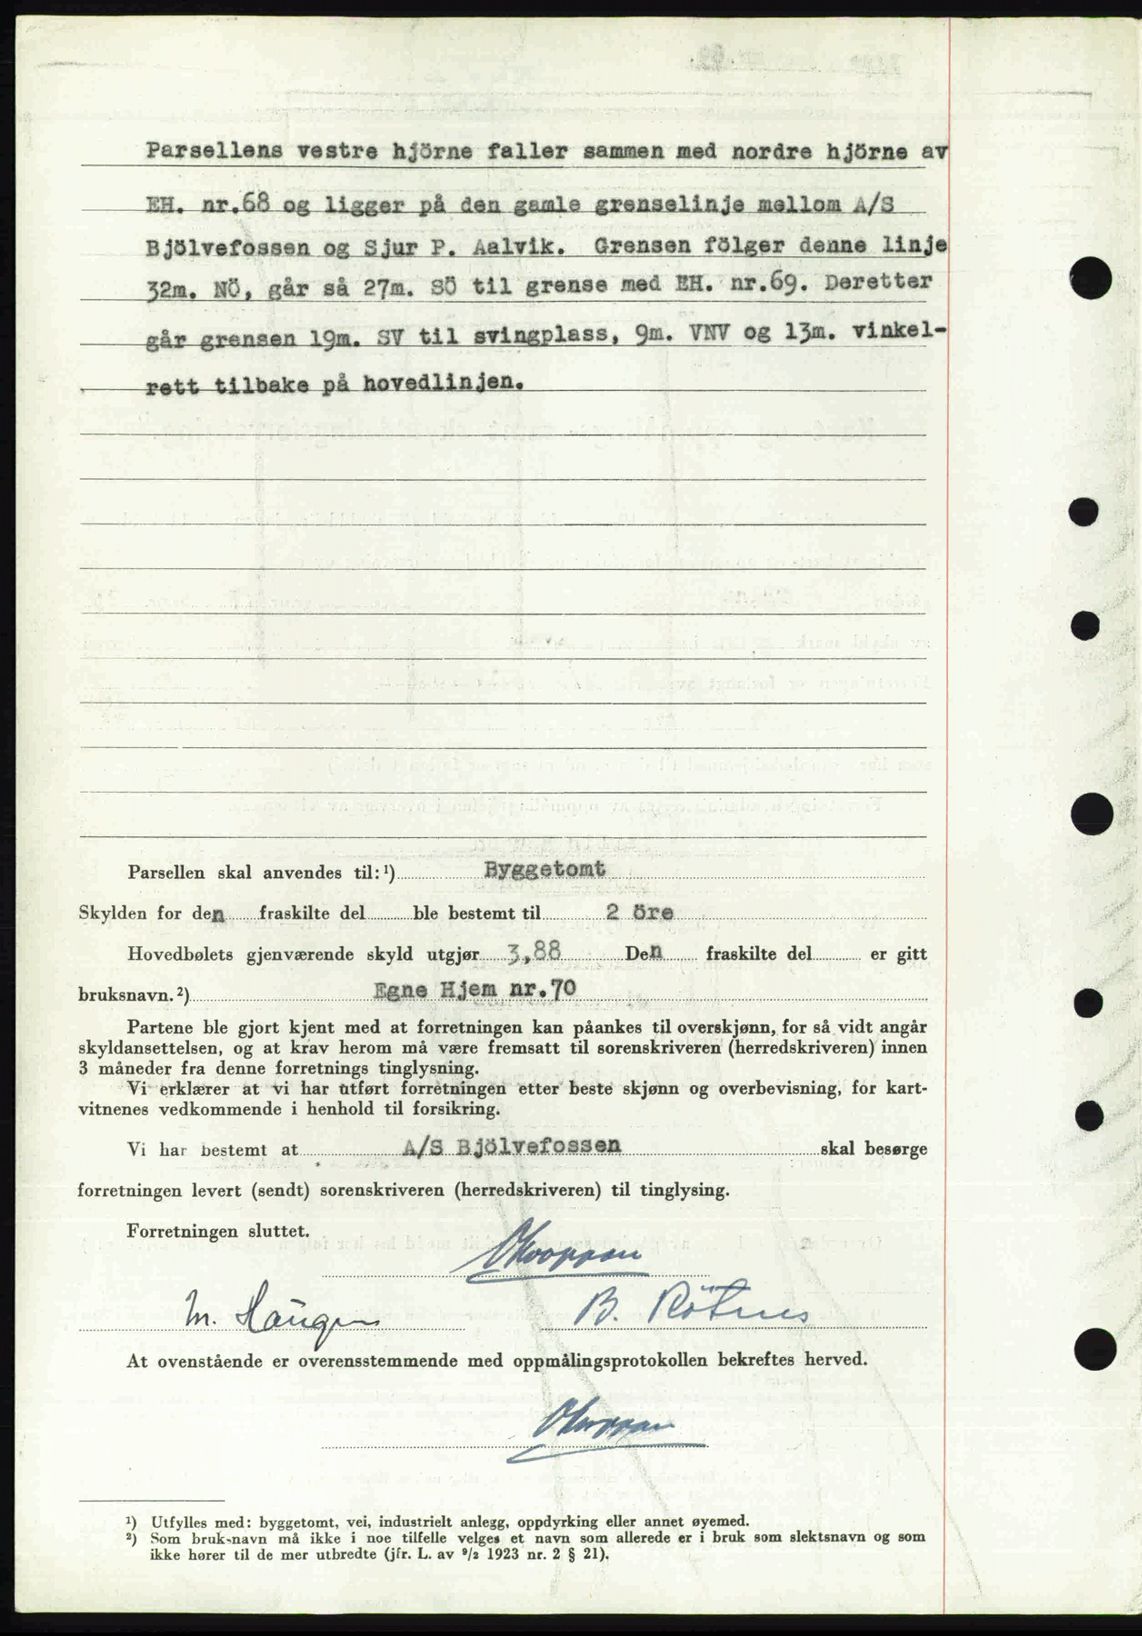 Parsellens vestre hjörne faller sammen med nordre hjörne av
EH. nr.68 og ligger på den gamle grenselinje mellom A/S
Bjölvefossen og Sjur P. Aalvik. Grensen fölger denne linje
32m. NÖ, går så 27m. SÖ til grense med EH. nr.69. Deretter
går grensen 19m. SV til svingplass, 9m. VNV og 13m. vinkel-
rett tilbake på hovedlinjen.
Parsellen skal anvendes til: ¹) Byggetomt
Skylden for den fraskilte del ble bestemt til 2 öre
Hovedbølets gjenværende skyld utgjør 3,88 Den fraskilte del er gitt
bruksnavn. ²) Egne Hjem nr.70
Partene ble gjort kjent med at forretningen kan påankes til overskjønn, for så vidt angår
skyldansettelsen, og at krav herom må være fremsatt til sorenskriveren (herredskriveren) innen
3 måneder fra denne forretnings tinglysning.
Vi erklærer at vi har utført forretningen etter beste skjønn og overbevisning, for kart-
vitnenes vedkommende i henhold til forsikring.
Vi har bestemt at A/S Bjölvefossen skal besørge
forretningen levert (sendt) sorenskriveren (herredskriveren) til tinglysing.
Forretningen sluttet.
M. Haugen B. Rötnes
At ovenstående er overensstemmende med oppmålingsprotokollen bekreftes herved.
¹) Utfylles med: byggetomt, vei, industrielt anlegg, oppdyrking eller annet øyemed.
²) Som bruk-navn må ikke i noe tilfelle velges et navn som allerede er i bruk som slektsnavn og som
ikke hører til de mer utbredte (jfr. L. av ⁹/₂ 1923 nr. 2 § 21).